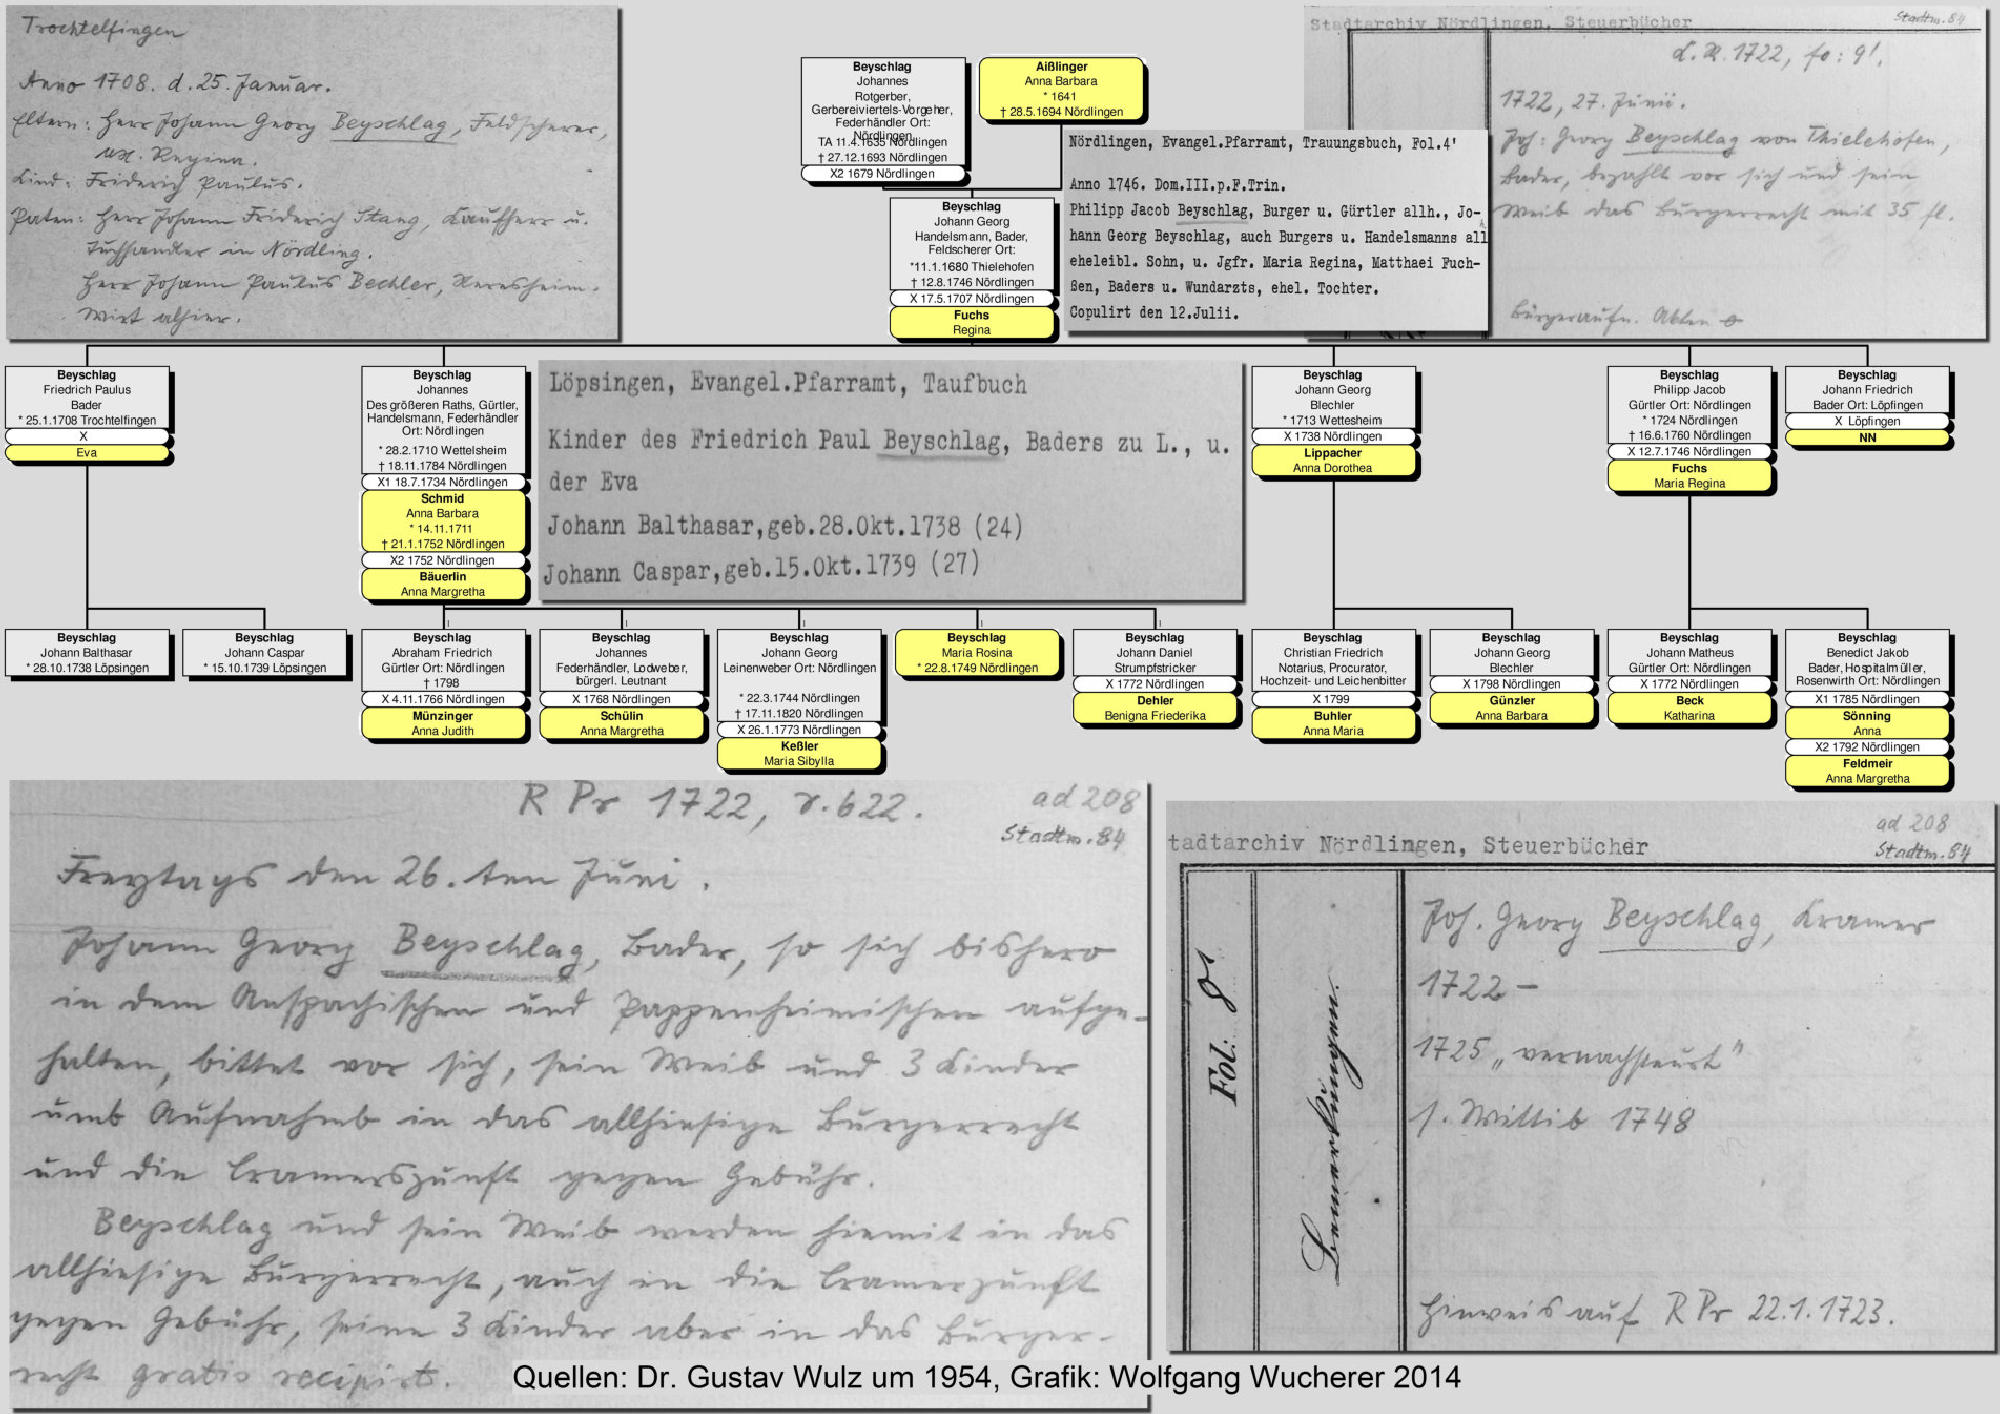 Trochtelfingen
Anno 1708. d. 25. Januar.
Eltern: Herr Johann Georg Beyschlag, Feldscherer,
ux. Regina.
Kind: Friderich Paulus.
Paten: Herr Johann Friderich Stang, Kaufherr u.
Tuchhandler in Nördling.
Herr Johann Paulus Bechler,
Wirt alhier.
Beyschlag
Johannes
Rotgerber,
Gerbereiviertels-Vorgeher,
Federhändler Ort:
Nördlingen
TA 11.4.1635 Nördlingen
† 27.12.1693 Nördlingen
X2 1679 Nördlingen
Aißlinger
Anna Barbara
* 1641
† 28.5.1694 Nördlingen
Beyschlag
Johann Georg
Handelsmann, Bader,
Feldscherer Ort:
*11.1.1680 Thielehofen
† 12.8.1746 Nördlingen
X 17.5.1707 Nördlingen
Fuchs
Regina
Nördlingen, Evangel.Pfarramt, Trauungsbuch, Fol.4'
Anno 1746. Dom.III.p.F.Trin.
Philipp Jacob Beyschlag, Burger u. Gürtler allh., Jo-
hann Georg Beyschlag, auch Burgers u. Handelsmanns all
eheleibl. Sohn, u. Jgfr. Maria Regina, Matthaei Fuch-
ßen, Baders u. Wundarzts, ehel. Tochter.
Copulirt den 12.Julii.
Stadtarchiv Nördlingen, Steuerbücher
Stadtm. 84
1722, fo: 9'.
1722, 27. Junii.
Joh: Georg Beyschlag von Thielehofen,
Bader, bezahlt vor sich und sein
Weib das Burgerrecht mit 35 fl.
Bürgeraufn.
Beyschlag
Friedrich Paulus
Bader
* 25.1.1708 Trochtelfingen
X
Eva
Beyschlag
Johannes
Des größeren Raths, Gürtler,
Handelsmann, Federhändler
Ort: Nördlingen
* 28.2.1710 Wettelsheim
† 18.11.1784 Nördlingen
X1 18.7.1734 Nördlingen
Schmid
Anna Barbara
* 14.11.1711
† 21.1.1752 Nördlingen
X2 1752 Nördlingen
Bäuerlin
Anna Margretha
Löpsingen, Evangel.Pfarramt, Taufbuch
Kinder des Friedrich Paul Beyschlag, Baders zu L., u.
der Eva
Johann Balthasar,geb.28.Okt.1738 (24)
Johann Caspar,geb.15.Okt.1739 (27)
Beyschlag
Johann Georg
Blechler
* 1713 Wettesheim
X 1738 Nördlingen
Lippacher
Anna Dorothea
Beyschlag
Philipp Jacob
Gürtler Ort: Nördlingen
* 1724 Nördlingen
† 16.6.1760 Nördlingen
X 12.7.1746 Nördlingen
Fuchs
Maria Regina
Beyschlag
Johann Friedrich
Bader Ort: Löpfingen
X Löpfingen
NN
Beyschlag
Johann Balthasar
* 28.10.1738 Löpsingen
Beyschlag
Johann Caspar
* 15.10.1739 Löpsingen
Beyschlag
Abraham Friedrich
Gürtler Ort: Nördlingen
† 1798
X 4.11.1766 Nördlingen
Münzinger
Anna Judith
Beyschlag
Johannes
Federhändler, Lodweber,
bürgerl. Leutnant
X 1768 Nördlingen
Schülin
Anna Margretha
Beyschlag
Johann Georg
Leinenweber Ort: Nördlingen
* 22.3.1744 Nördlingen
† 17.11.1820 Nördlingen
X 26.1.1773 Nördlingen
Keßler
Maria Sibylla
Beyschlag
Maria Rosina
* 22.8.1749 Nördlingen
Beyschlag
Johann Daniel
Strumpfstricker
X 1772 Nördlingen
Dehler
Benigna Friederika
Beyschlag
Christian Friedrich
Notarius, Procurator,
Hochzeit- und Leichenbitter
X 1799
Buhler
Anna Maria
Beyschlag
Johann Georg
Blechler
X 1798 Nördlingen
Günzler
Anna Barbara
Beyschlag
Johann Matheus
Gürtler Ort: Nördlingen
X 1772 Nördlingen
Beck
Katharina
Beyschlag
Benedict Jakob
Bader, Hospitalmüller,
Rosenwirth Ort: Nördlingen
X1 1785 Nördlingen
Sönning
Anna
X2 1792 Nördlingen
Feldmeir
Anna Margretha
R Pr 1722, r. 622.
ad 208
Stadtm. 84
Freytags den 26. ten Juni.
Johann Georg Beyschlag, Bader, so sich bishero
in dem Anspachischen und Pappenheimischen aufge-
halten, bittet vor sich, sein Weib und 3 Kinder
umb Aufnahmb in das allhiesige Burgerrecht
und die Cramerszunft gegen Gebühr.
Beyschlag und sein Weib werden hiemit in das
allhiesige Burgerrecht, auch in die Cramerzunft
gegen Gebühr, seine 3 Kinder aber in das Burger-
recht gratis recipirt.
tadtarchiv Nördlingen, Steuerbücher
ad 208
Stadtm. 84
Fol. 8'
Bemerkungen.
Joh. Georg Beyschlag, Kramer
1722 –
1725 „vernachsteurt"
s. Wittib 1748
Hinweis auf R Pr 22.1.1723.
Quellen: Dr. Gustav Wulz um 1954, Grafik: Wolfgang Wucherer 2014